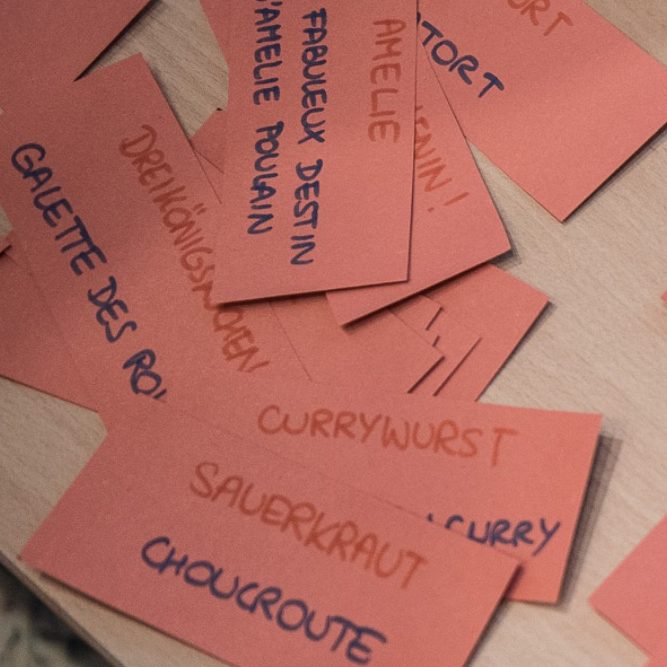 AMELIE
FABULEUX DESTIN
D'AMELIE POULAIN
TORT
DREIKÖNIGSKUCHEN
GALETTE DES ROI
ENIN!
CURRYWURST
CURRY
SAUERKRAUT
CHOUCROUTE